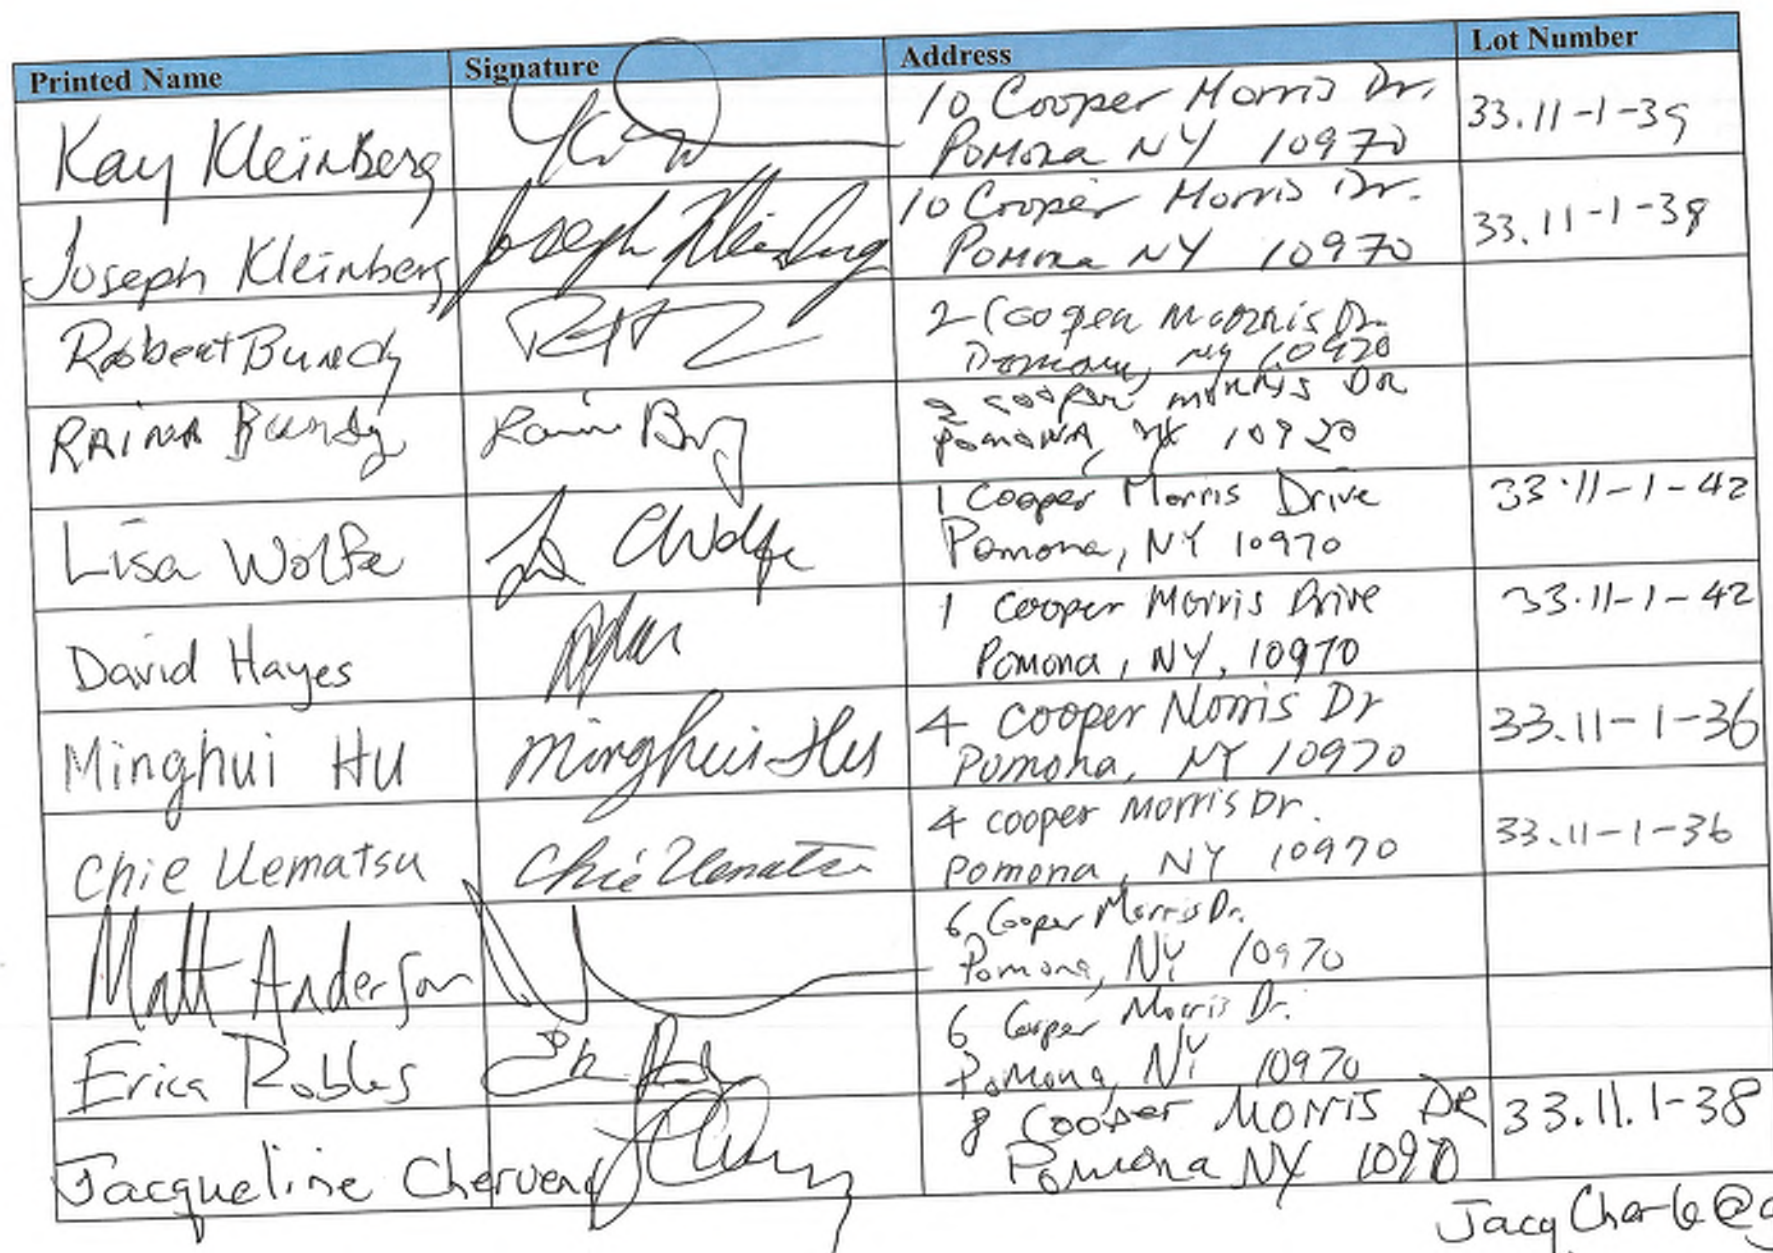 Printed Name Signature Address Lot Number
Kay Kleinberg 10 Cooper Morris Dr. 33.11-1-39
Pomona NY 10970
Joseph Kleinberg Joseph Kleinberg 10 Cooper Morris Dr.
Pomona NY 10970
Robert Bundy 2 Cooper Morris Dr.
Pomona, NY 10970
RAINA Bundy 2 Cooper Morris DR
Pomona, NY 10920
Lisa Wolfe Wolfe 1 Cooper Morris Drive 33.11-1-42
Pomona, NY 10970
David Hayes 1 Cooper Morris Drive 33.11-1-42
Pomona, NY, 10970
Minghui Hu Minghui Hu 4 Cooper Norris Dr 33.11-1-36
Pomona, NY 10970
Chie Uematsu Chie Uematsu 4 cooper Morris Dr. 33.11-1-36
Pomona, NY 10970
Matt Anderson 6 Cooper Morris Dr.
Pomona, NY 10970
Erica Robles 6 Cooper Morris Dr.
Pomona, NY 10970
Jacqueline Cherveny 8 Cooper Morris DR 33.11.1-38
Pomona NY 10970